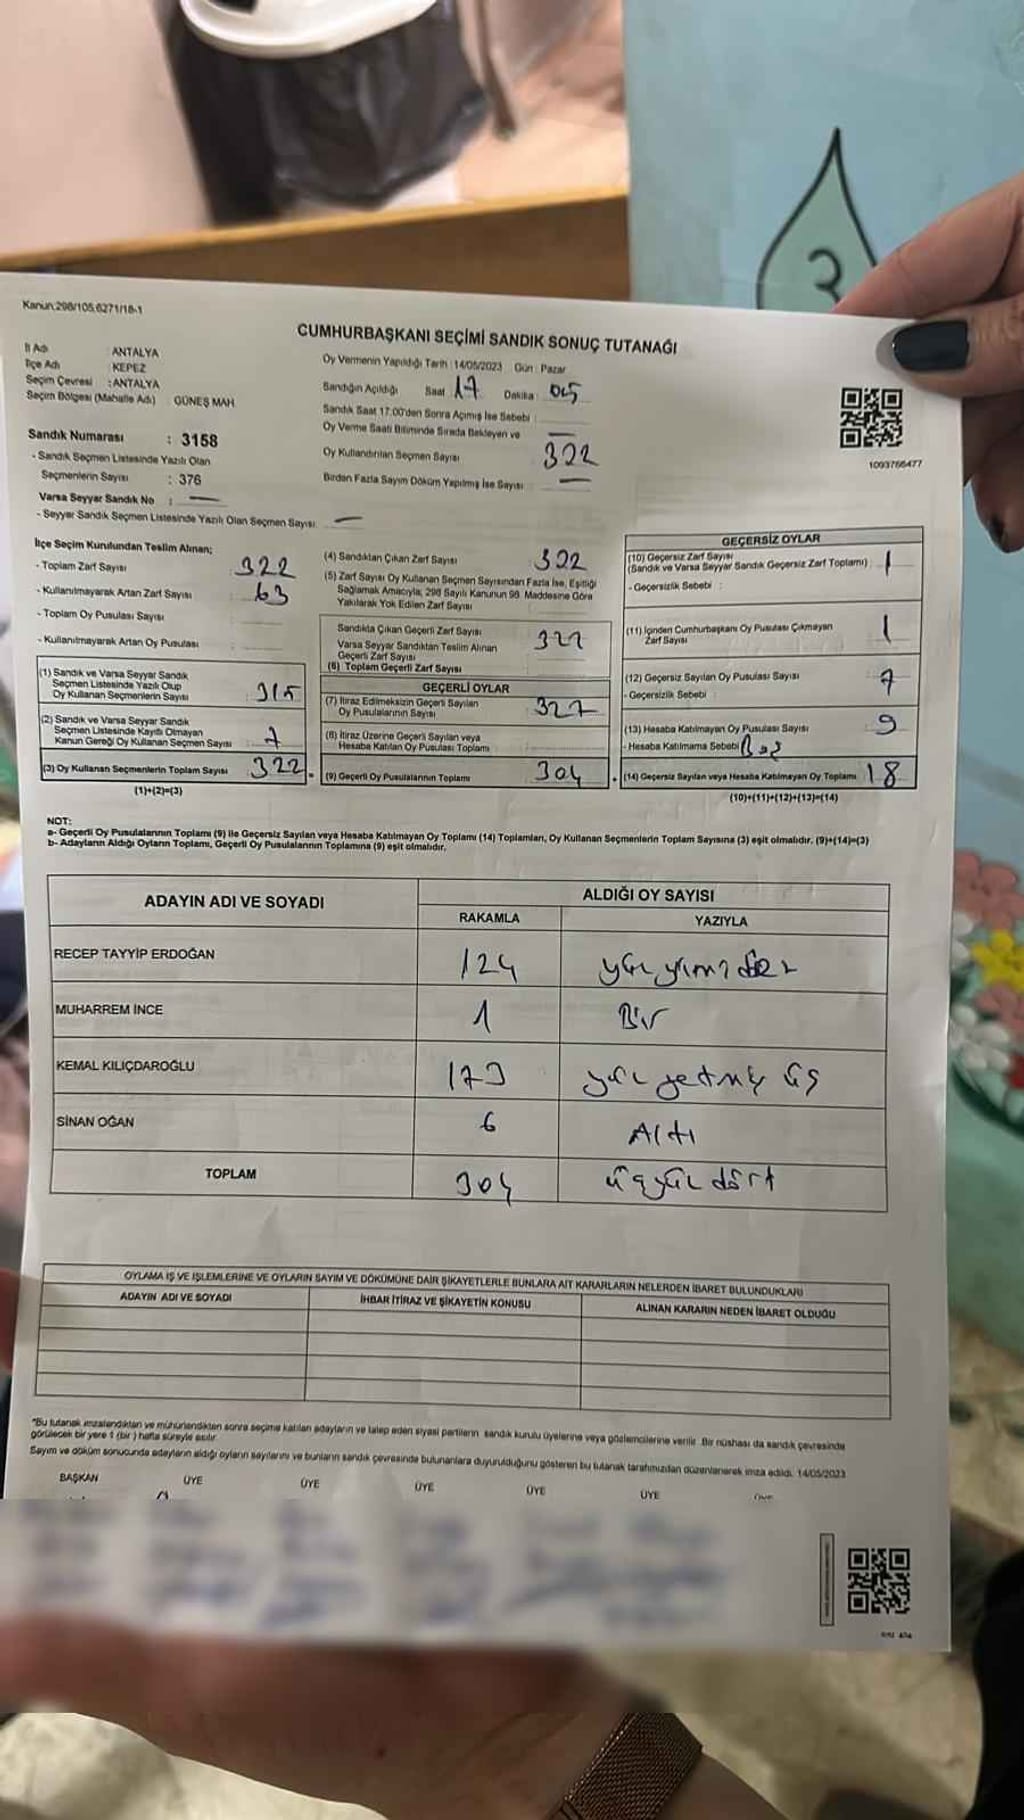 3
Kanun:298/105,6271/18-1
CUMHURBAŞKANI SEÇİMİ SANDIK SONUÇ TUTANAĞI
İl Adı : ANTALYA
İlçe Adı : KEPEZ
Seçim Çevresi : ANTALYA
Seçim Bölgesi (Mahalle Adı) GÜNEŞ MAH.
Sandık Numarası : 3158
- Sandık Seçmen Listesinde Yazılı Olan
Seçmenlerin Sayısı : 376
Varsa Seyyar Sandık No : —
- Seyyar Sandık Seçmen Listesinde Yazılı Olan Seçmen Sayısı: —
Oy Vermenin Yapıldığı Tarih : 14/05/2023 Gün : Pazar
Sandığın Açıldığı Saat 17 Dakika : 05
Sandık Saat 17:00'den Sonra Açımış İse Sebebi :
Oy Verme Saati Bitiminde Sırada Bekleyen ve —
Oy Kullandırılan Seçmen Sayısı 322
Birden Fazla Sayım Döküm Yapılmış İse Sayısı : —
1093766477
İlçe Seçim Kurulundan Teslim Alınan;
- Toplam Zarf Sayısı 322
- Kullanılmayarak Artan Zarf Sayısı 63
- Toplam Oy Pusulası Sayısı
- Kullanılmayarak Artan Oy Pusulası
(1) Sandık ve Varsa Seyyar Sandık
Seçmen Listesinde Yazılı Olup
Oy Kullanan Seçmenlerin Sayısı 315
(2) Sandık ve Varsa Seyyar Sandık
Seçmen Listesinde Kayıtlı Olmayan
Kanun Gereği Oy Kullanan Seçmen Sayısı 7
(3) Oy Kullanan Seçmenlerin Toplam Sayısı 322
(1)+(2)=(3)
(4) Sandıktan Çıkan Zarf Sayısı 322
(5) Zarf Sayısı Oy Kullanan Seçmen Sayısından Fazla İse, Eşitliği
Sağlamak Amacıyla, 298 Sayılı Kanunun 98. Maddesine Göre
Yakılarak Yok Edilen Zarf Sayısı
Sandıkta Çıkan Geçerli Zarf Sayısı 322
Varsa Seyyar Sandıktan Teslim Alınan
Geçerli Zarf Sayısı
(6) Toplam Geçerli Zarf Sayısı
GEÇERLİ OYLAR
(7) İtiraz Edilmeksizin Geçerli Sayılan
Oy Pusulalarının Sayısı 322
(8) İtiraz Üzerine Geçerli Sayılan veya
Hesaba Katılan Oy Pusulası Toplamı
(9) Geçerli Oy Pusulalarının Toplamı 304
GEÇERSİZ OYLAR
(10) Geçersiz Zarf Sayısı
(Sandık ve Varsa Seyyar Sandık Geçersiz Zarf Toplamı) : 1
- Geçersizlik Sebebi :
(11) İçinden Cumhurbaşkanı Oy Pusulası Çıkmayan
Zarf Sayısı 1
(12) Geçersiz Sayılan Oy Pusulası Sayısı 7
- Geçersizlik Sebebi :
(13) Hesaba Katılmayan Oy Pusulası Sayısı 9
- Hesaba Katılmama Sebebi Boş
(14) Geçersiz Sayılan veya Hesaba Katılmayan Oy Toplamı 18
(10)+(11)+(12)+(13)=(14)
NOT:
a- Geçerli Oy Pusulalarının Toplamı (9) ile Geçersiz Sayılan veya Hesaba Katılmayan Oy Toplamı (14) Toplamları, Oy Kullanan Seçmenlerin Toplam Sayısına (3) eşit olmalıdır. (9)+(14)=(3)
b- Adayların Aldığı Oyların Toplamı, Geçerli Oy Pusulalarının Toplamına (9) eşit olmalıdır.
ADAYIN ADI VE SOYADI ALDIĞI OY SAYISI
RAKAMLA YAZIYLA
RECEP TAYYİP ERDOĞAN 124
MUHARREM İNCE 1 Bir
KEMAL KILIÇDAROĞLU 173 yüz yetmiş üç
SİNAN OĞAN 6 Altı
TOPLAM 304 üçyüz dört
OYLAMA İŞ VE İŞLEMLERİNE VE OYLARIN SAYIM VE DÖKÜMÜNE DAİR ŞİKAYETLERLE BUNLARA AİT KARARLARIN NELERDEN İBARET BULUNDUKLARI
ADAYIN ADI VE SOYADI İHBAR İTİRAZ VE ŞİKAYETİN KONUSU ALINAN KARARIN NEDEN İBARET OLDUĞU
*Bu tutanak imzalandıktan ve mühürlendikten sonra seçime katılan adayların ve talep eden siyasi partilerin sandık kurulu üyelerine veya gözlemcilerine verilir. Bir nüshası da sandık çevresinde
görülecek bir yere 1 (bir ) hafta süreyle asılır.
Sayım ve döküm sonucunda adayların aldığı oyların sayılarını ve bunların sandık çevresinde bulunanlara duyurulduğunu gösteren bu tutanak tarafımızdan düzenlenerek imza edildi. 14/05/2023
BAŞKAN ÜYE ÜYE ÜYE ÜYE ÜYE